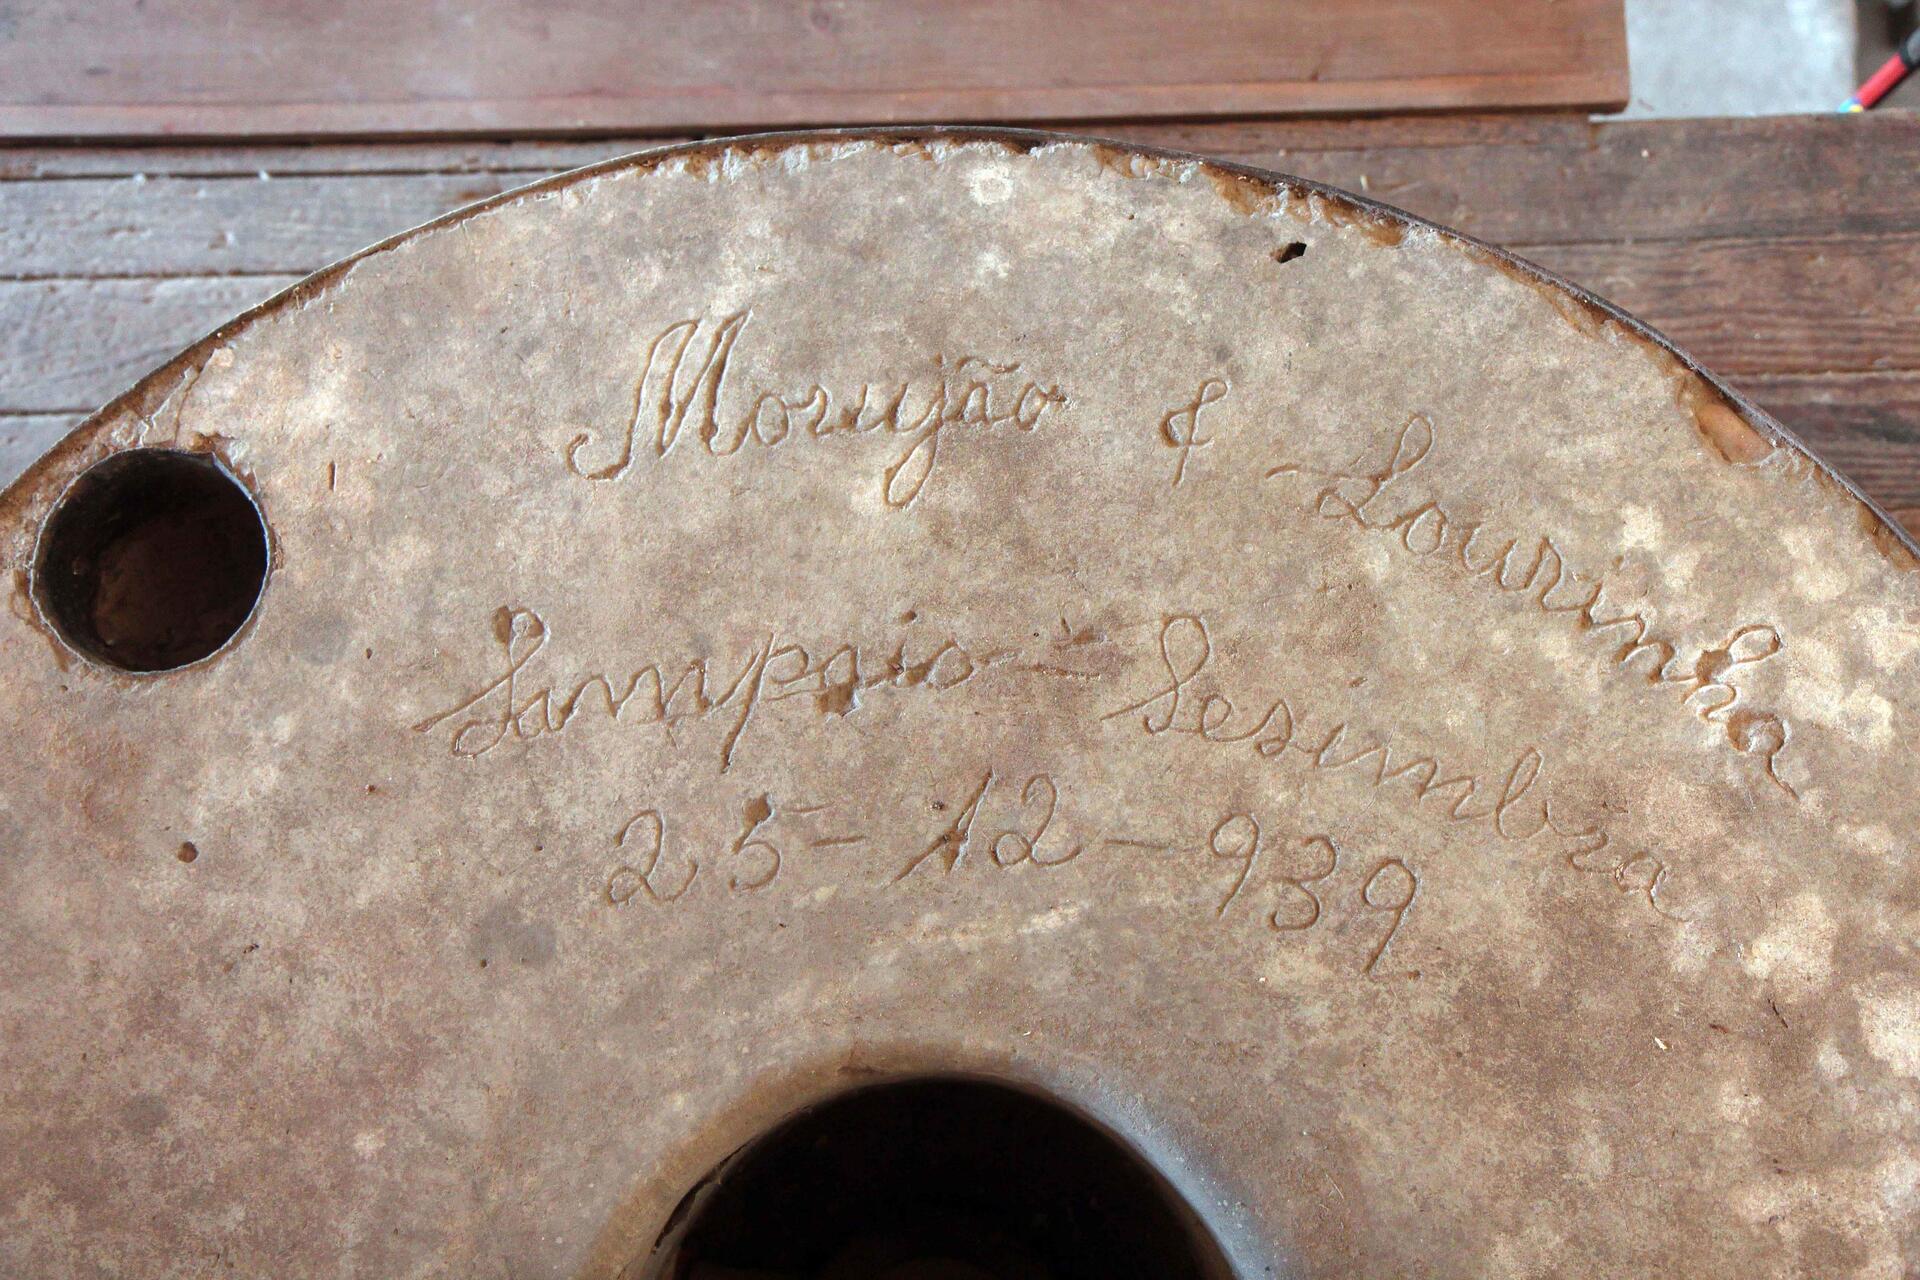 Morujão & Lourinha
Sampaio - Sesimbra
25-12-939